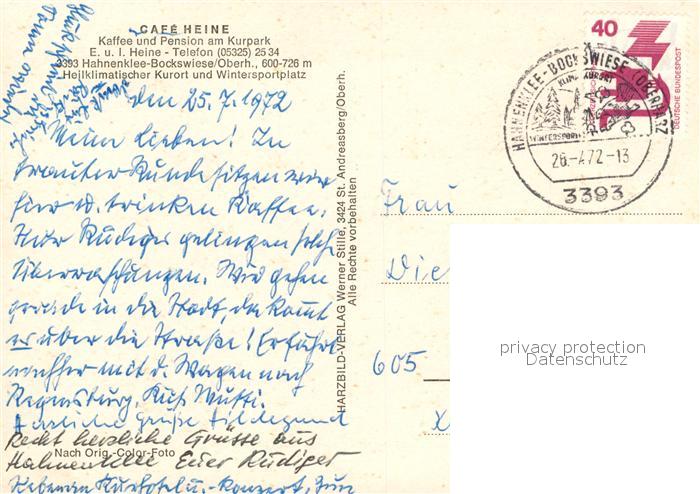 CAFÉ HEINE
Kaffee und Pension am Kurpark
E. u. I. Heine - Telefon (05325) 25 34
3393 Hahnenklee-Bockswiese/Oberh., 600-726 m
Heilklimatischer Kurort und Wintersportplatz
den 25.7.1972
Meine Lieben! In
trauter Runde sitzen wir
hier u. trinken Kaffee.
Nur Rüdiger gelingen solche
Überraschungen. Wir gehen
gerade in die Stadt, da kommt
er über die Straße! Er fährt
nachher mit d. Wagen nach
Regensburg. Kuß Mutti.
Herzliche Grüße Hildegund
Recht herzliche Grüsse aus
Hahnenklee Euer Rüdiger
Nach Orig.-Color-Foto
HARZBILD-VERLAG Werner Stille, 3424 St. Andreasberg/Oberh.
Alle Rechte vorbehalten
40
DEUTSCHE BUNDESPOST
HAHNENKLEE-BOCKSWIESE (OBERHARZ)
WINTERSPORT
26.-7.72-13
3393
Frau
Die
605
privacy protection
Datenschutz